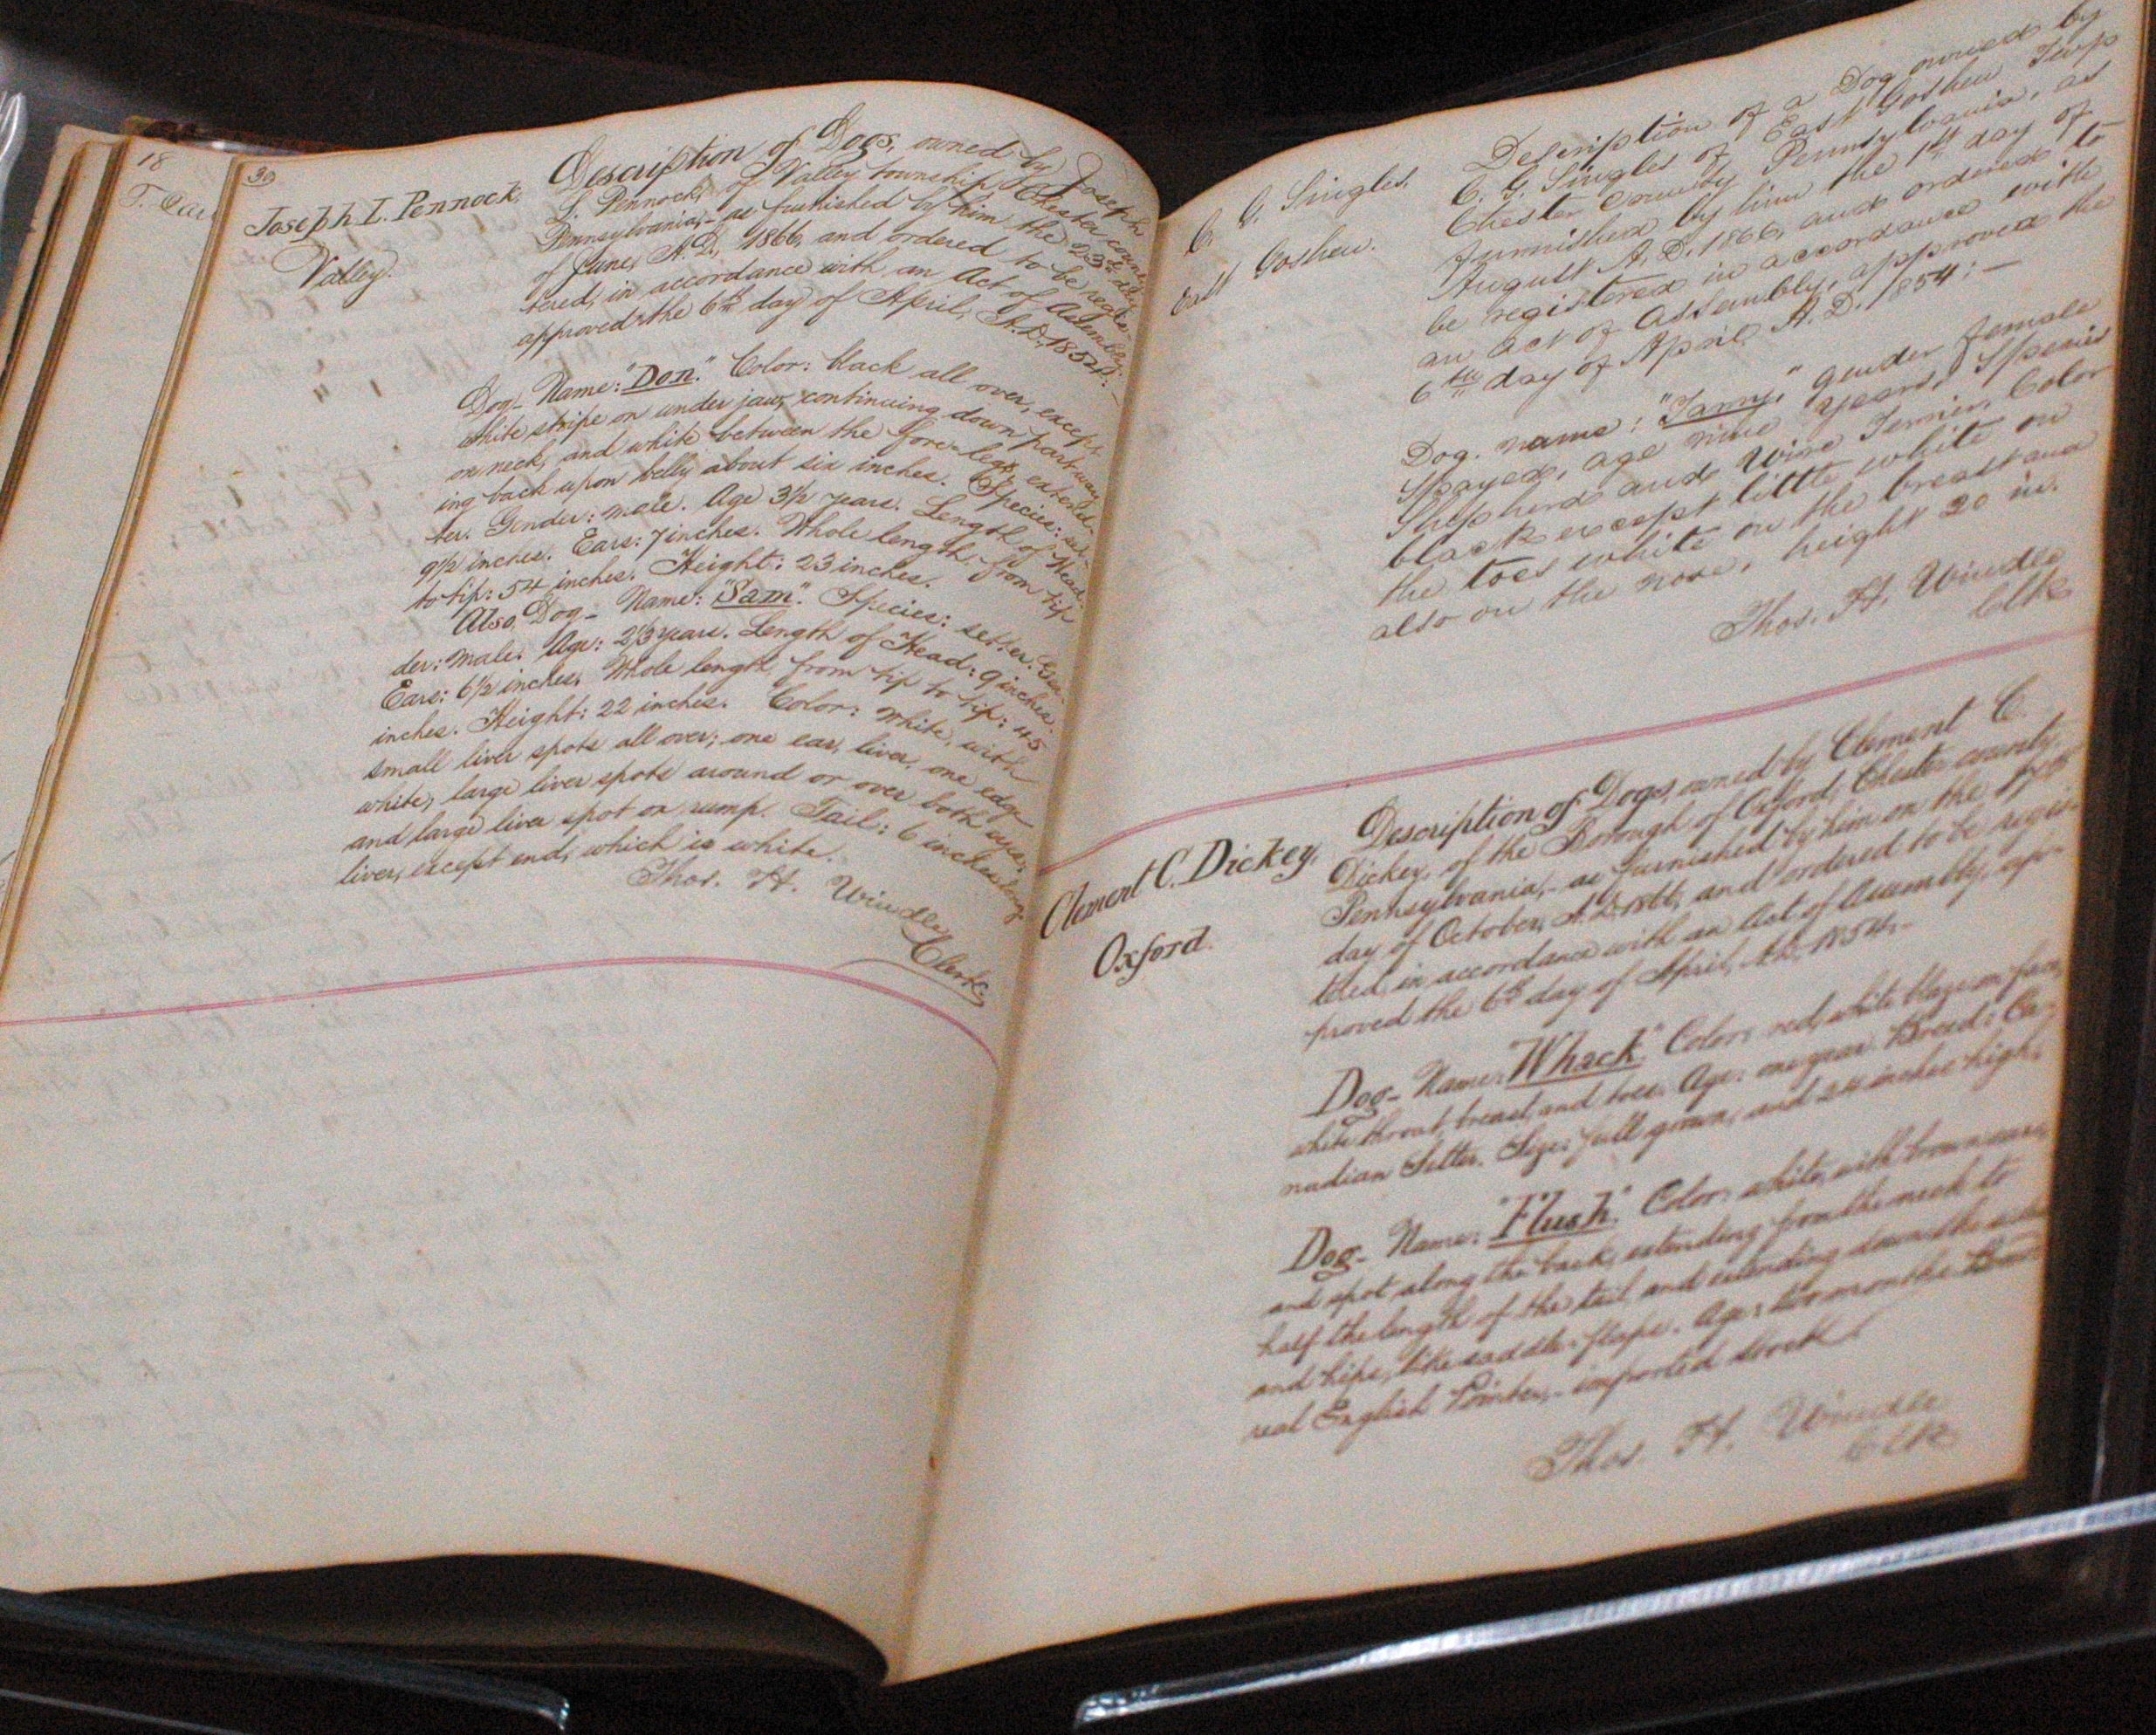 18
30
Joseph L. Pennock,
Valley.
Description of Dogs, owned by Joseph
L. Pennock, of Valley township, Chester county,
Pennsylvania,- as furnished by him the 23d day
of June, A.D., 1866, and ordered to be regis-
tered, in accordance with an Act of Assembly,
approved the 6th day of April, A.D., 1854:-
Dog- Name: "Don." Color: black all over, except
white stripe on under jaw, continuing down part way
on neck, and white between the fore-legs, extend-
ing back upon belly about six inches. Species: set-
ter. Gender: male. Age 3½ years. Length of Head:
9½ inches. Ears: 7 inches. Whole length, from tip
to tip: 54 inches. Height: 23 inches.
Also, Dog- Name: "Sam". Species: setter. Gen-
der: male. Age: 2⅓ years. Length of Head: 9 inches.
Ears: 6½ inches. Whole length, from tip to tip: 45
inches. Height: 22 inches. Color: White, with
small liver spots all over; one ear, liver, one edge
white, large liver spots around or over both eyes;
and large liver spot on rump. Tail: 6 inches long,
liver, except end, which is white.
Thos. H. Windle,
Clerk.
C. G. Singles,
East Goshen.
Description of a Dog owned by
C. G. Singles of East Goshen Twp
Chester County Pennsylvania, as
furnished by him the 1st day of
August A.D. 1866, and ordered to
be registered in accordance with
an act of Assembly, approved the
6th day of April A. D. 1854:-
Dog. name: "Jamy," gender female
Spayed, age nine years, Species
Shepherd and Wire Terrier, Color
black except little white on
the toes white on the breast and
also on the nose, height 20 in.
Thos. H. Windle
Clk
Clement C. Dickey,
Oxford.
Description of Dogs, owned by Clement C.
Dickey, of the Borough of Oxford, Chester county,
Pennsylvania,- as furnished by him on the
day of October, A.D. 1866, and ordered to be regis-
tered, in accordance with an Act of Assembly, ap-
proved the 6th day of April, A.D. 1854.-
Dog- Name: "Whack." Color: red, white blaze on face,
white throat, breast, and toes. Age: one year. Breed: Ca-
nadian Setter. Size: full grown, and 24 inches high.
Dog- Name: "Flush." Color: white, with brown ears,
and spot along the back, extending from the neck to
half the length of the tail, and extending down the sides
and hips, like saddle-flaps. Age: two months. Breed:
real English Pointer,- imported stock.
Thos. H. Windle
Clk